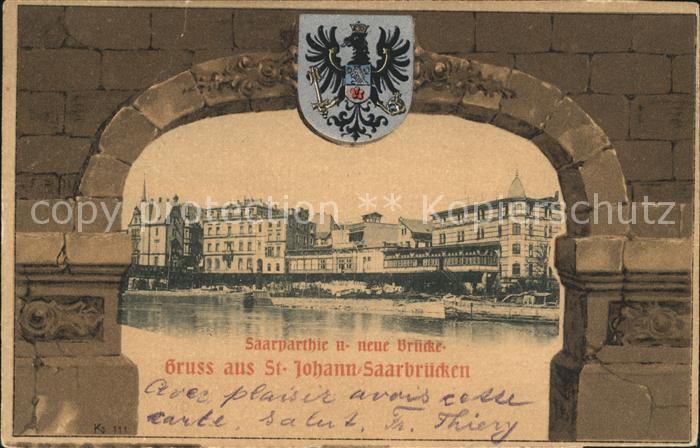 copyright protection ** Kopierschutz
Saarparthie u· neue Brücke·
Gruss aus St· Johann-Saarbrücken
Avec plaisir avois cette
carte, salut, Fr. Thiery
Ks 111